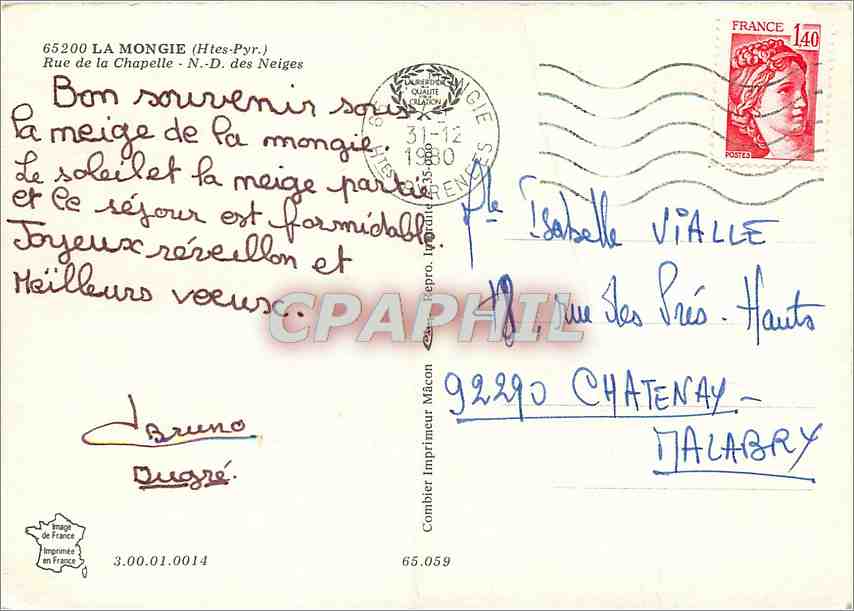 65200 LA MONGIE (Htes-Pyr.)
Rue de la Chapelle - N.-D. des Neiges
Bon souvenir sous
la neige de la mongie.
Le soleil et la neige partie
et le séjour est formidable.
Joyeux réveillon et
Meïlleurs voeux..
Bruno
Dugré.
Image
de France
Imprimée
en France
3.00.01.0014
65.059
Combier Imprimeur Mâcon
Repro. Interdite
LAURIER D'OR
QUALITE
CREATION
MONGIE
31-12
1980
Htes PYRENEES
FRANCE
1,40
POSTES
Mle Isabelle VIALLE
18, rue des Prés-Hauts
92290 CHATENAY-
MALABRY
CPAPHIL